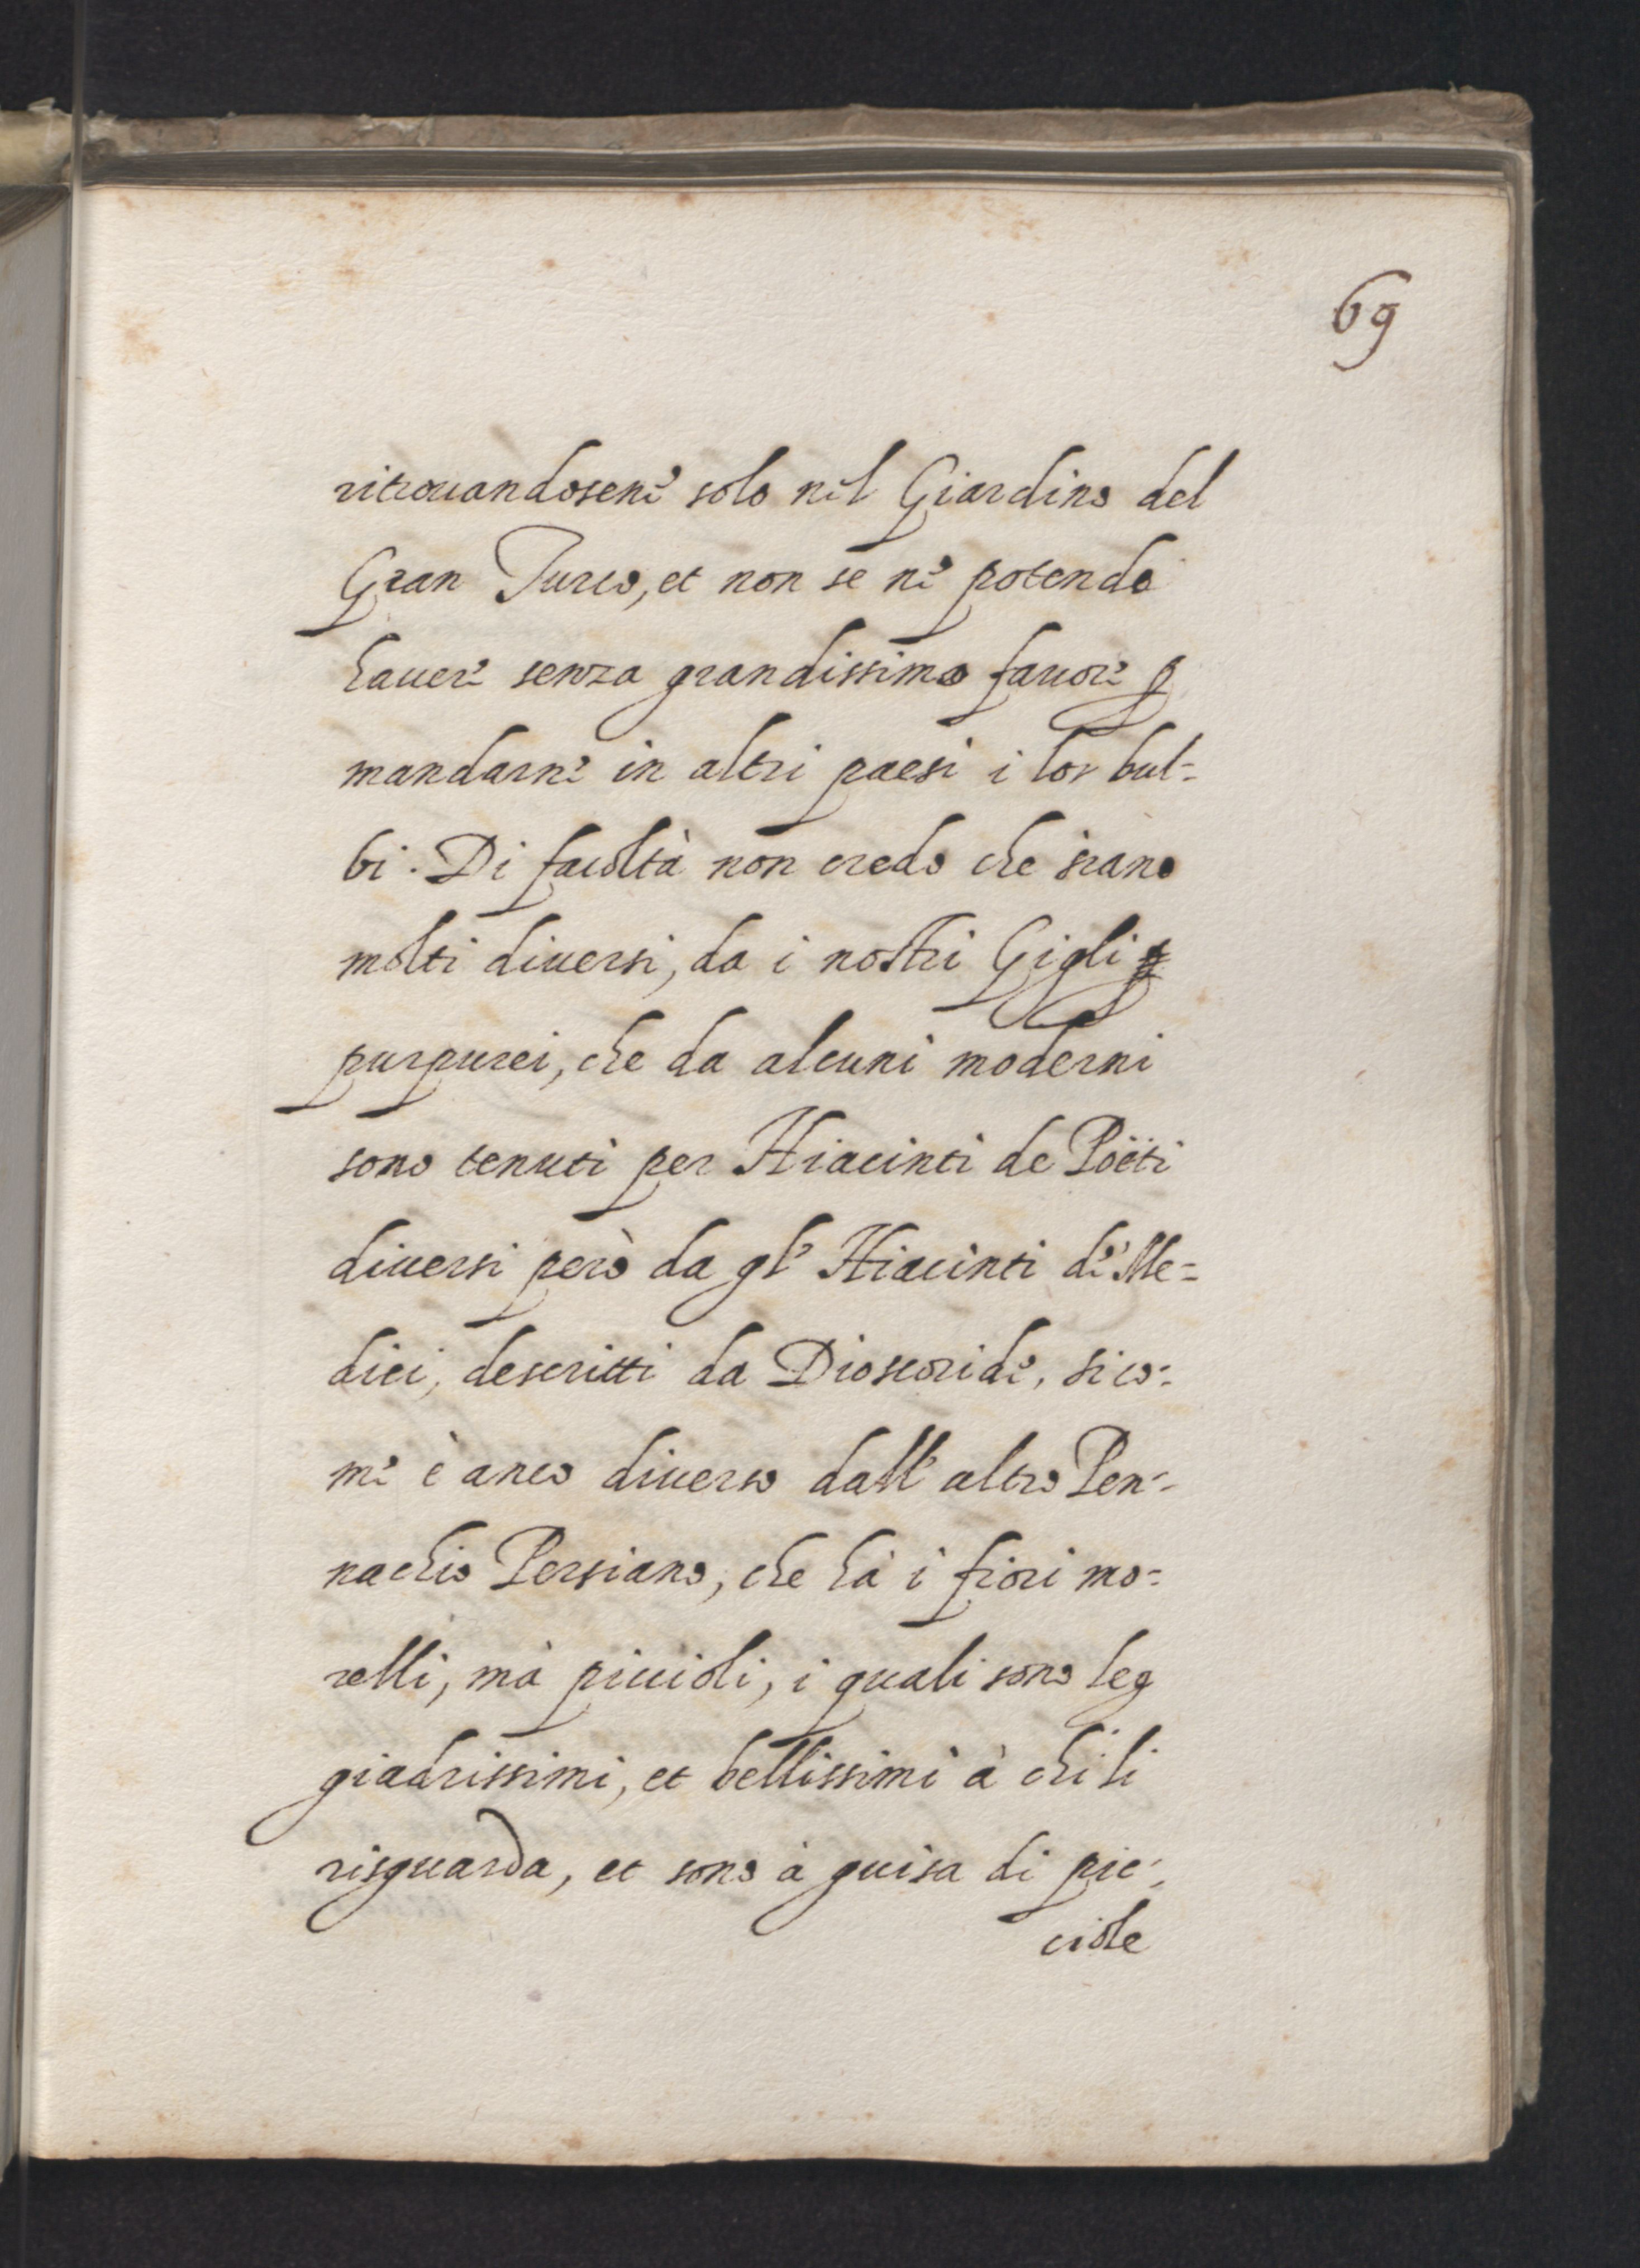 69
ritrouandosene solo nel Giardino del
Gran Turco, et non se ne potendo
hauere senza grandissimo fauore ꝑ
mandarne in altri paesi i lor bul=
bi. Di facoltà non credo che siano
molti diuersi, da i nostri Gigli
purpurei, che da alcuni moderni
sono tenuti per Hiacinti de Poëti
diuersi però da gl' Hiacinti de' Me=
dici, descritti da Dioscoride, sico=
me è anco diuerso dall' altro Pen=
nachio Persiano, che hà i fiori mo=
relli, mà piccioli, i quali sono leg
giadrissimi, et bellissimi à chi li
risguarda, et sono à guisa di pic=
ciole